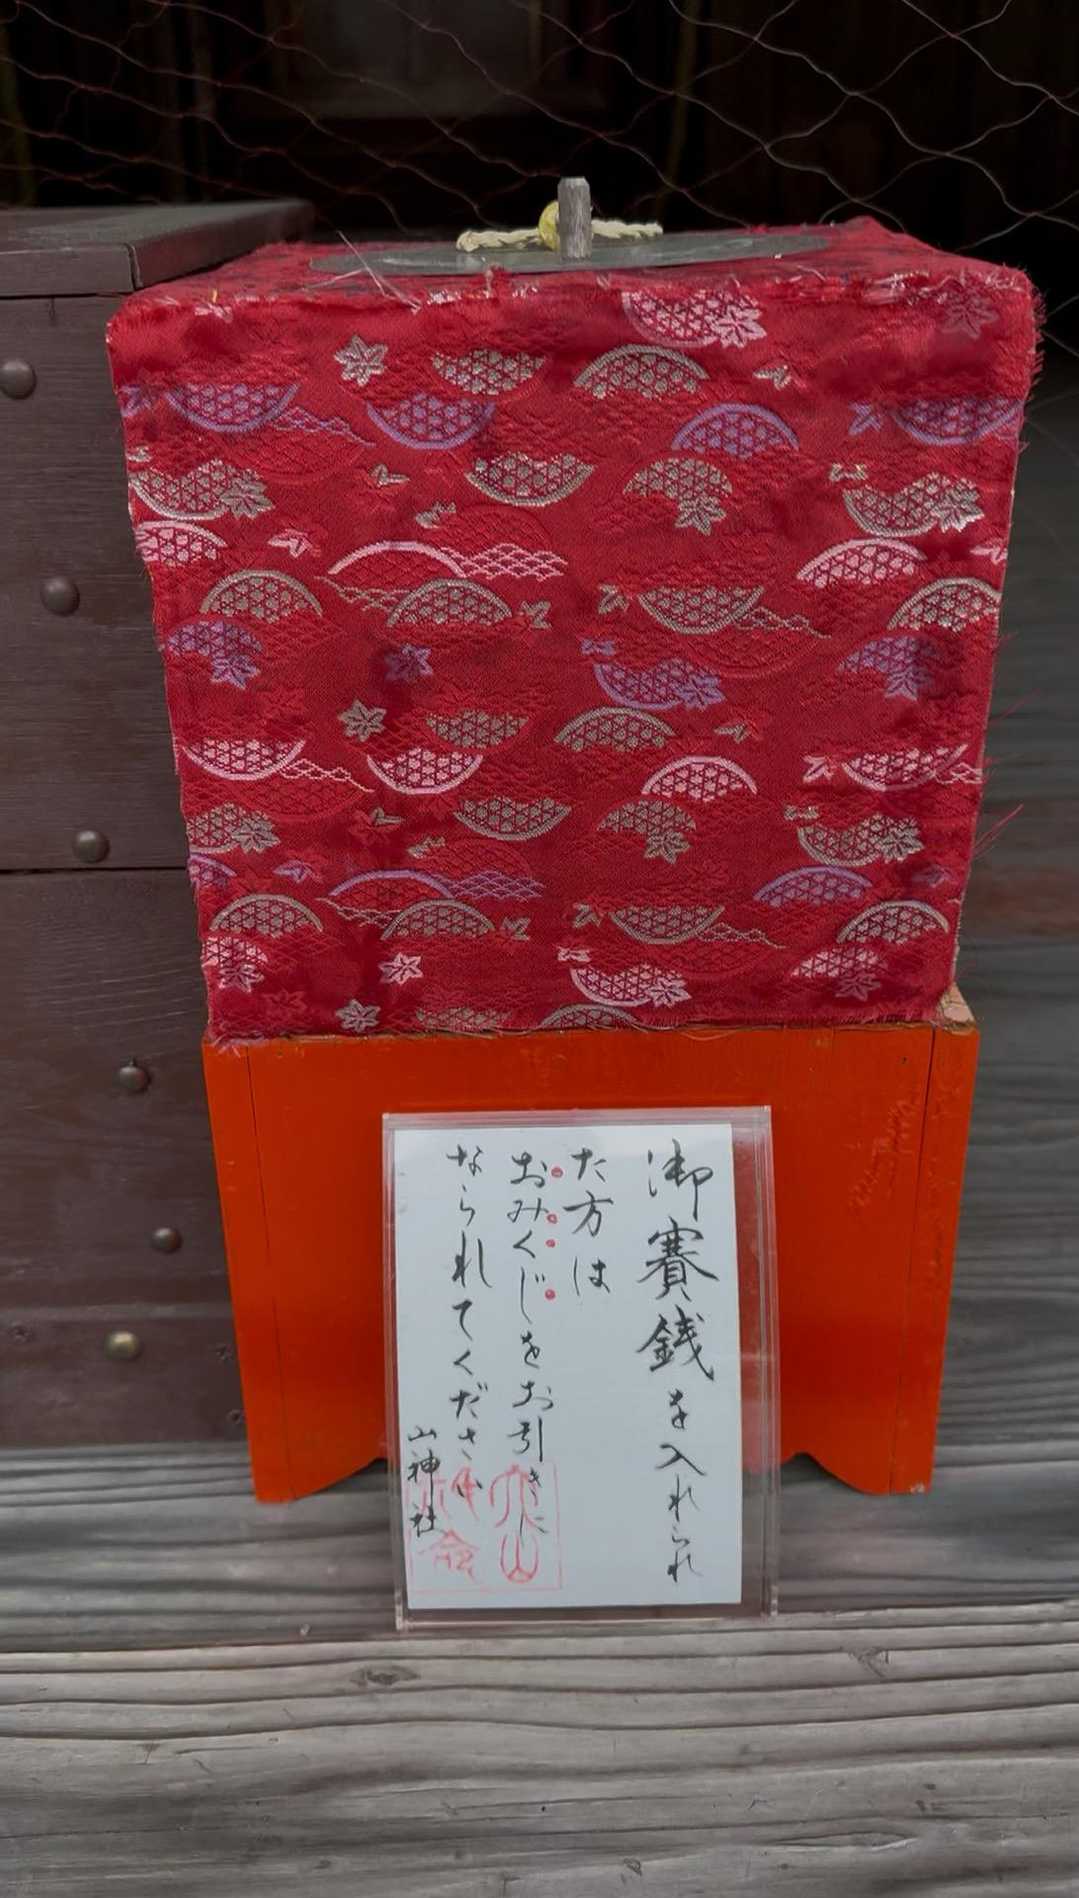 御賽銭を入れられ
た方は
おみくじをお引きに
なられてください
山神社